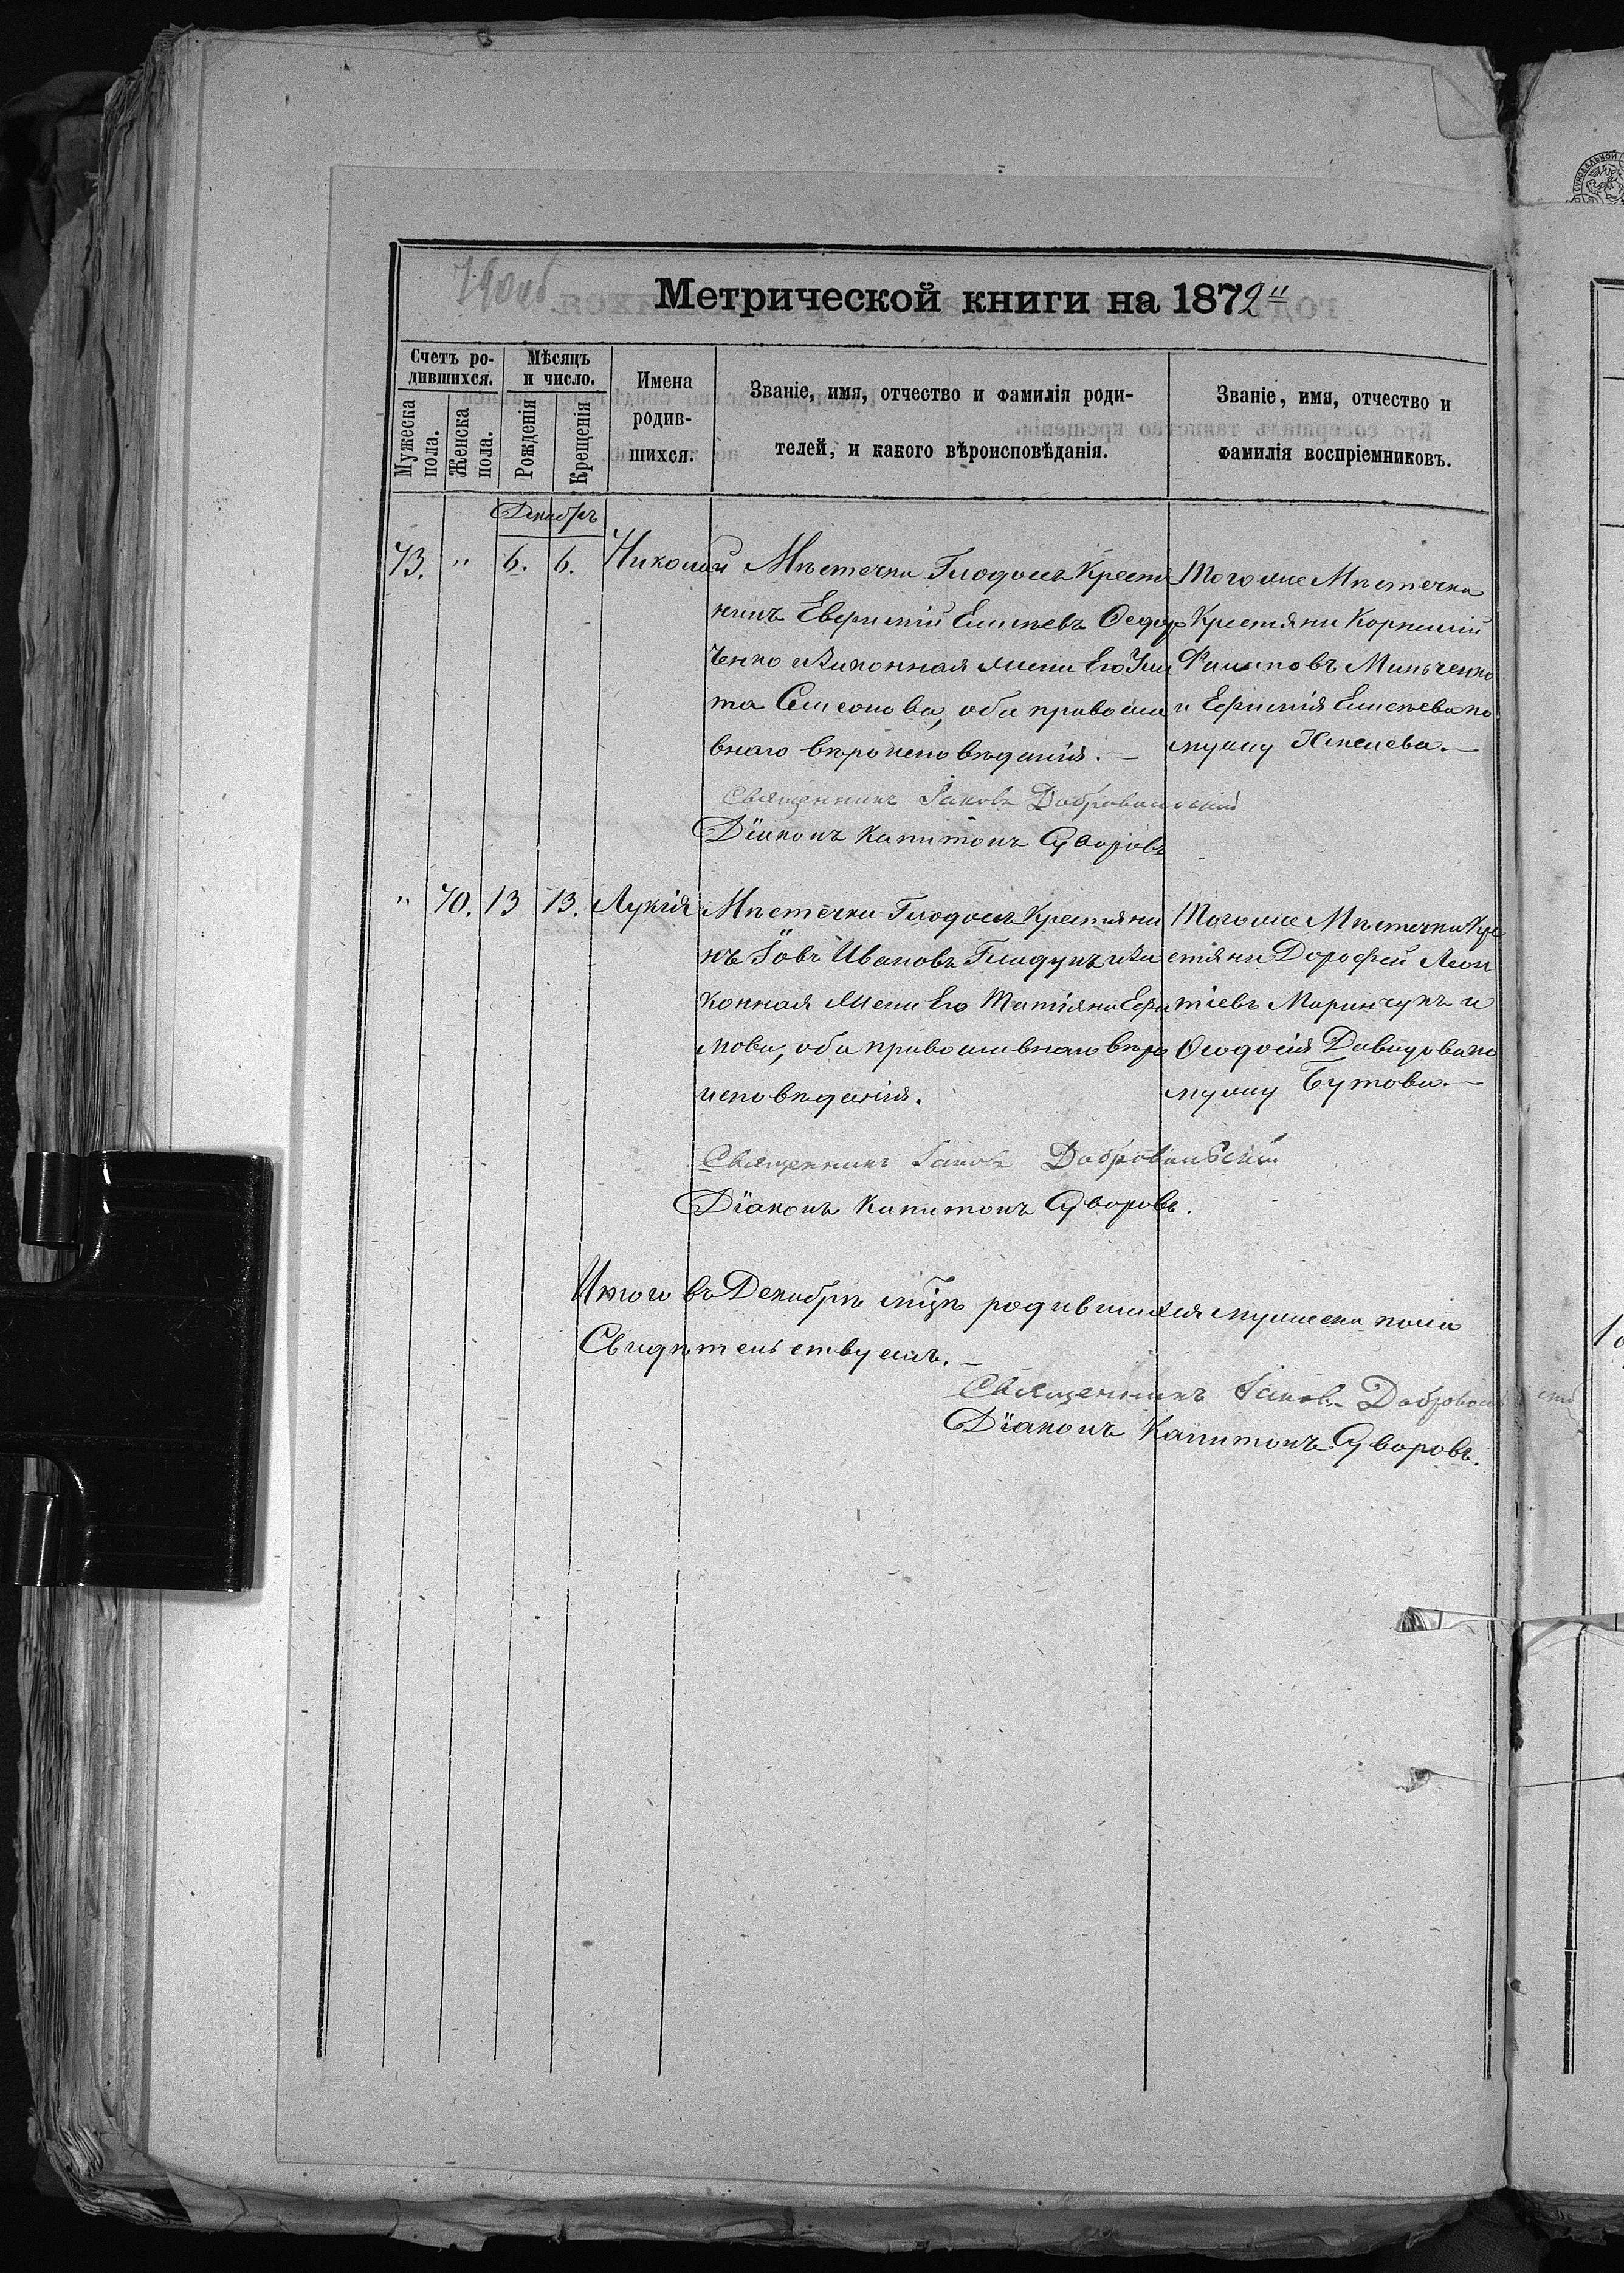 790об
Метрической книги на 1872й
Счетъ родившихся.
Мѣсяцъ и число.
Имена родившихся.
Званіе, имя, отчество и фамилія роди-
телей, и какого вѣроисповѣданія.
Званіе, имя, отчество и
фамилія воспріемниковъ.
Мужеска пола.
Женска пола.
Рожденія
Крещенія
Декабрь
73. " 6. 6. Николай
Мѣстечка Глодосъ Крестя
нинъ Евфимій Елисѣевъ Ѳедор
ченко и Законная жена Его Ули
та Симеонова, оба правосла
внаго вѣроисповѣданія. —
Тогоже Мѣстечка
Крестянин Корнилій
Филиповъ Минченко
и Ефимія Елисѣева по
мужу Кисилева. —
Священникъ Іаковъ Добровольскій
Діаконъ Капитонъ Суворовъ
" 70. 13 13. Лукія
Мѣстечка Глодосъ Крестяни
нъ Іовъ Ивановъ Гладунъ и За
конная жена Его Татіяна Ефи
мова, оба православнаго вѣро
исповѣданія.
Тогоже Мѣстечка Кре
стянин Дорофей Леон
тіевъ Маринчукъ и
Ѳеодосія Давидова по
мужу Бутова. —
Священникъ Іаковъ Добровольскій
Діаконъ Капитонъ Суворовъ.
Итого въ Декабрѣ мѣцѣ родившихся мужеска пола
Свидѣтельствуемъ. —
Священникъ Іаковъ Добровольскій
Діаконъ Капитонъ Суворовъ.